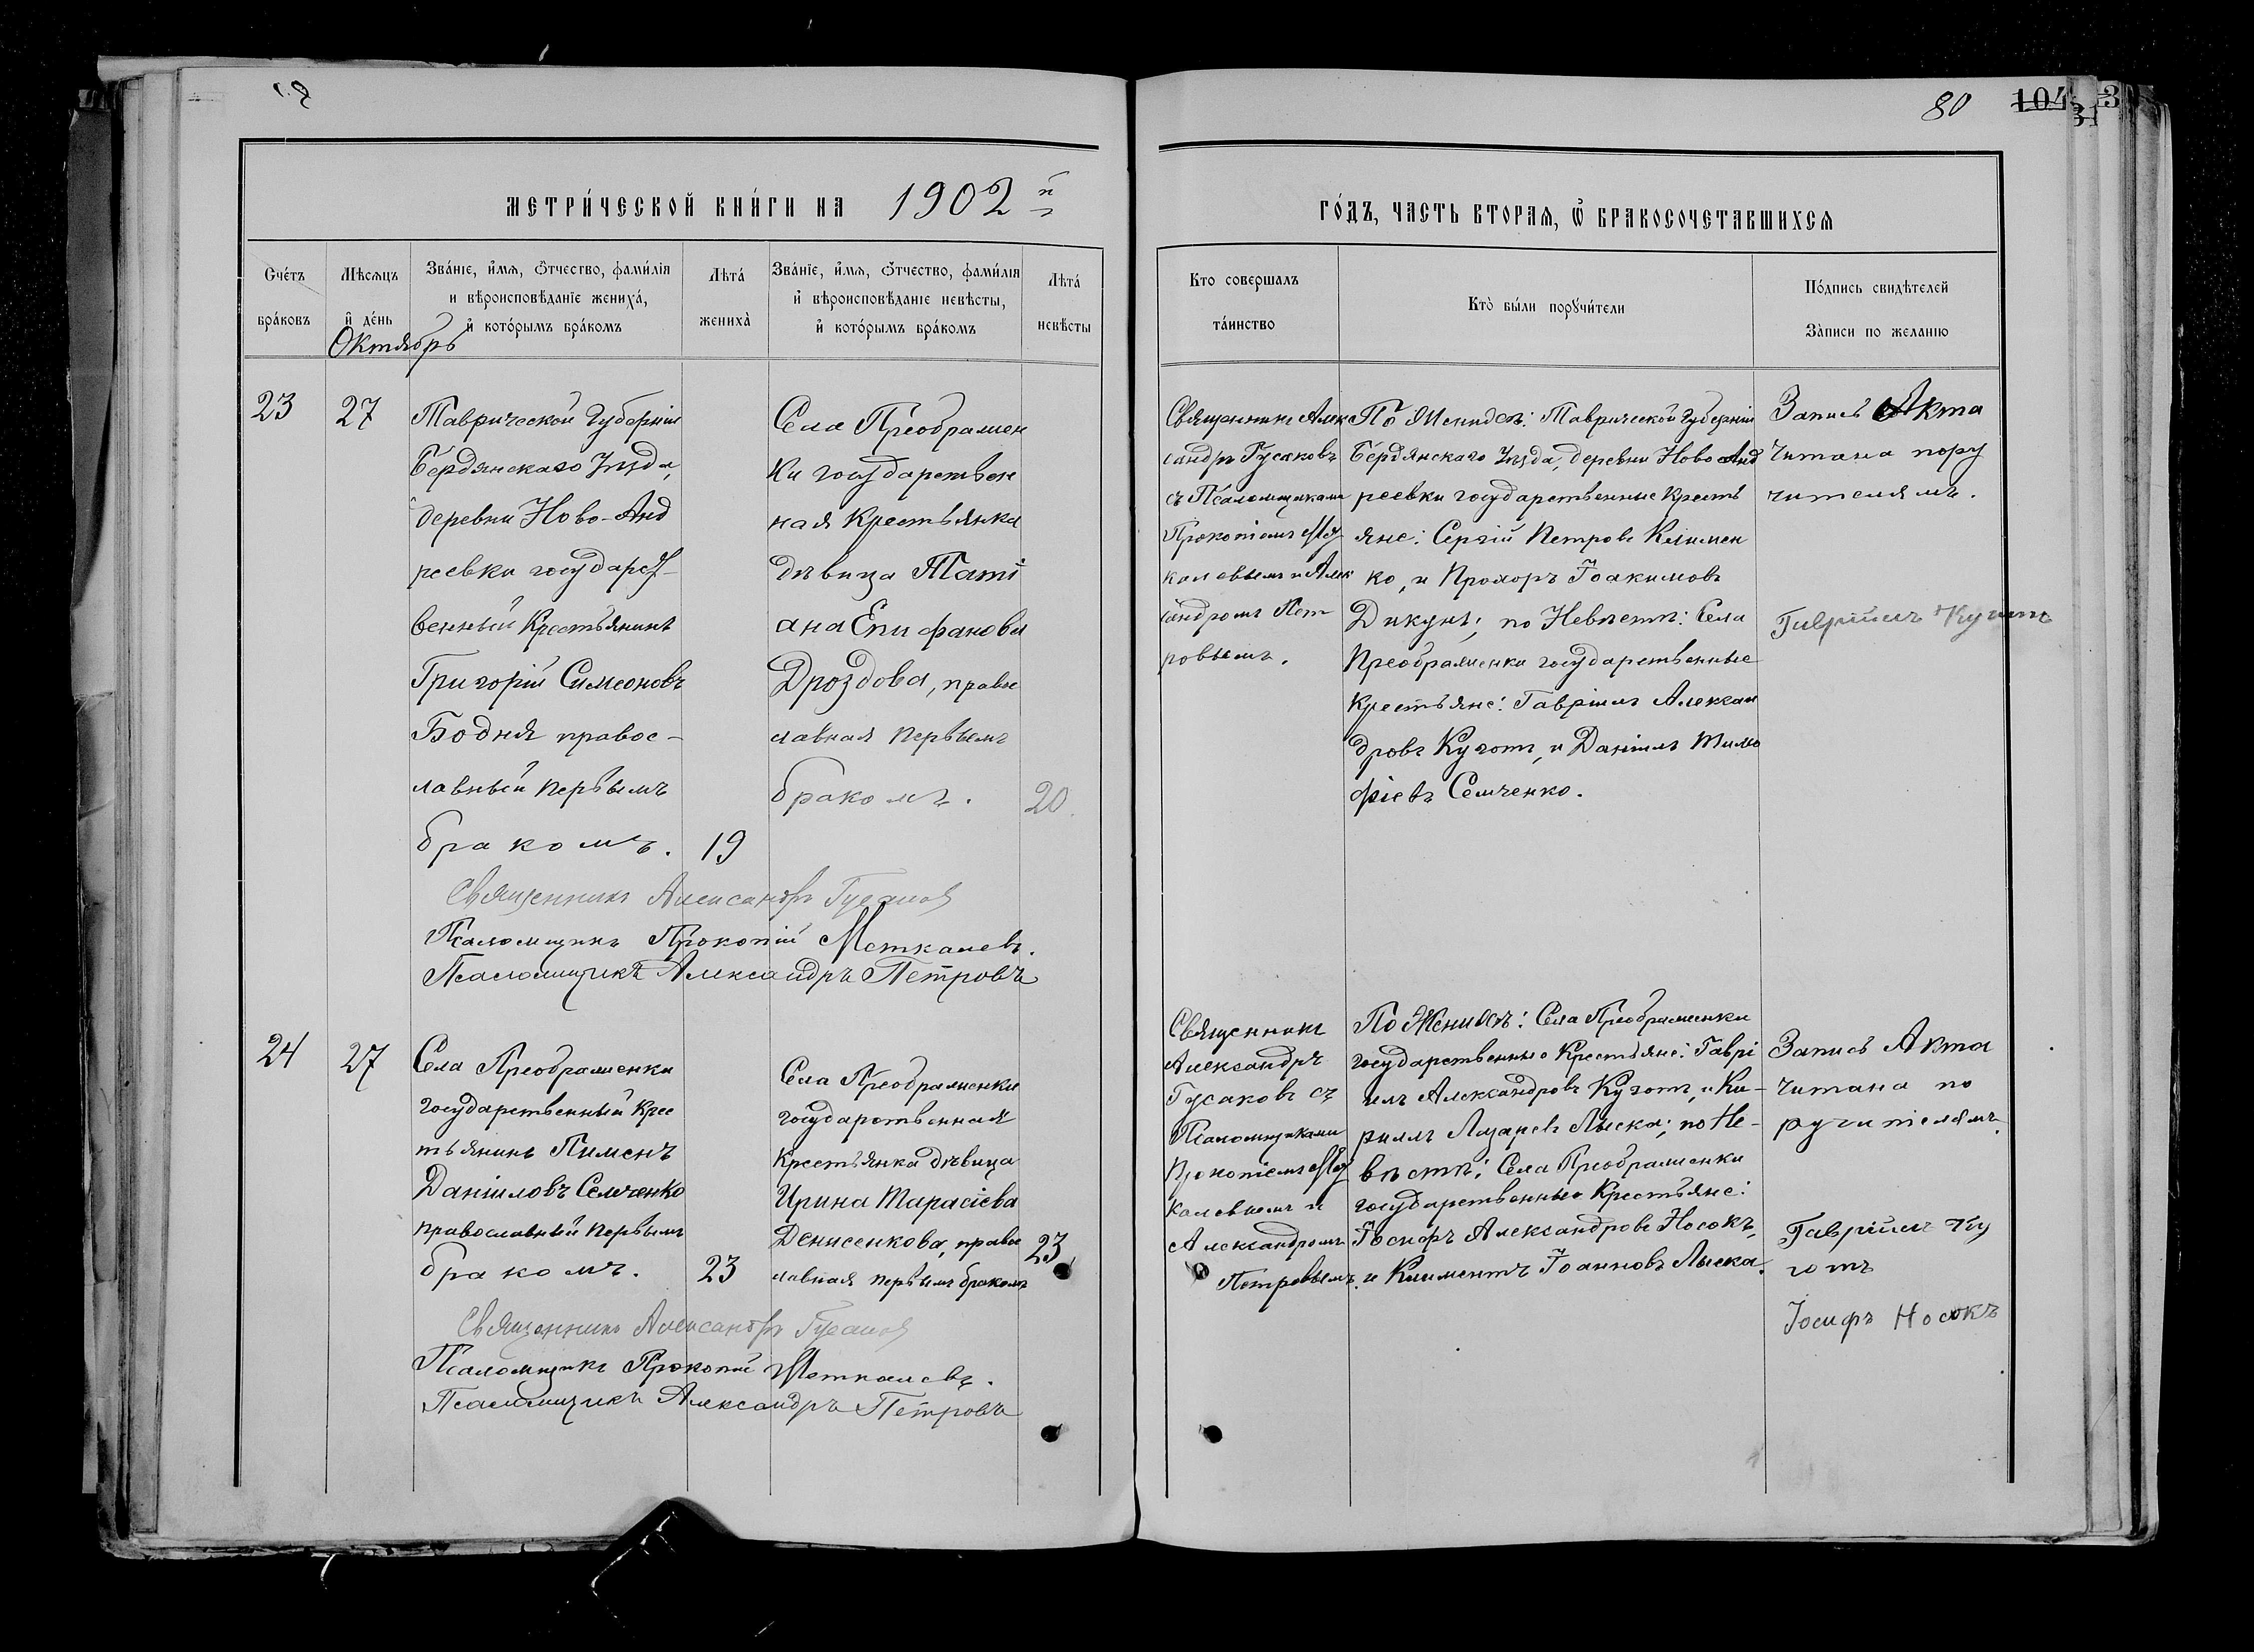 80
104
31
3
МЕТРИ́ЧЕСКОЙ КНИ́ГИ НА 1902 й
ГО́ДЪ, ЧАСТЬ ВТОРАѦ, Ѡ҆ БРАКОСОЧЕТАВШИХСѦ
Счéтъ
брáковъ
Мѣсѧцъ
и҆ дéнь
Октябрь
Звáнїе, и҆́мѧ, ѻ҆́тчество, фами́лїѧ
и вѣроисповѣ́данїе женихá,
и҆ котóрымъ брáкомъ
Лѣтá
женихà
Звáнїе, и҆́мѧ, ѻ҆́тчество, фами́лїѧ
и҆ вѣроисповѣ́данїе невѣсты,
и҆ котóрымъ брáкомъ
Лѣтá
невѣ́сты
Кто совершалъ
тáинство
Ктò бы́ли порꙋчи́тели
Пóдпись свидѣ́телей
Зàписи по желанію
23
27
Таврической Губерніи
Бердянскаго Уѣзда,
деревни Ново-Анд
реевки государст-
венный Крестьянинъ
Григорій Симеоновъ
Бодня правос-
лавный первымъ
бракомъ.
19
Села Преображен
ки государствен
ная Крестьянка
дѣвица Таті
ана Епифанова
Дроздова, право
славная первымъ
бракомъ.
20
Священникъ Алек
сандръ Гусаковъ
съ Псаломщиками
Прокопіемъ Мет
калевымъ и Алек
сандромъ Пет
ровымъ.
По Женихѣ: Таврической Губерніи
Бердянскаго Уѣзда, деревни Ново Анд
реевки государственные Кресть
яне: Сергій Петровъ Климен
ко, и Прохоръ Іоакимовъ
Дикунъ; по Невѣстѣ: Села
Преображенки государственные
Крестьяне: Гавріилъ Алексан
дровъ Куготъ, и Даніилъ Тимо
фіевъ Семченко.
Запись Акта
читана пору
чителямъ.
Гавріилъ Куготъ
Священникъ Александръ Гусаковъ
Псаломщикъ Прокопій Меткалевъ.
Псаломщикъ Александръ Петровъ
24
27
Села Преображенки
государственный Крес
тьянинъ Пименъ
Даніиловъ Семченко
православный первымъ
бракомъ.
23
Села Преображенки
государственная
Крестьянка дѣвица
Ирина Тарасіева
Денисенкова, право
славная первымъ бракомъ
23
Священникъ
Александръ
Гусаковъ съ
Псаломщиками
Прокопіемъ Мет
калевымъ и
Александромъ
Петровымъ.
По Женихѣ: Села Преображенки
государственные Крестьяне: Гаврі
илъ Александровъ Куготъ, и Ки-
риллъ Лазаревъ Лыска; по Не-
вѣстѣ: Села Преображенки
государственные Крестьяне:
Іосифъ Александровъ Носокъ,
и Климентъ Іоанновъ Лыска.
Запись Акта
читана по
ручителямъ.
Гавріилъ Ку
готъ
Іосифъ Носокъ
Священникъ Александръ Гусаковъ
Псаломщикъ Прокопій Меткалевъ.
Псаломщикъ Александръ Петровъ